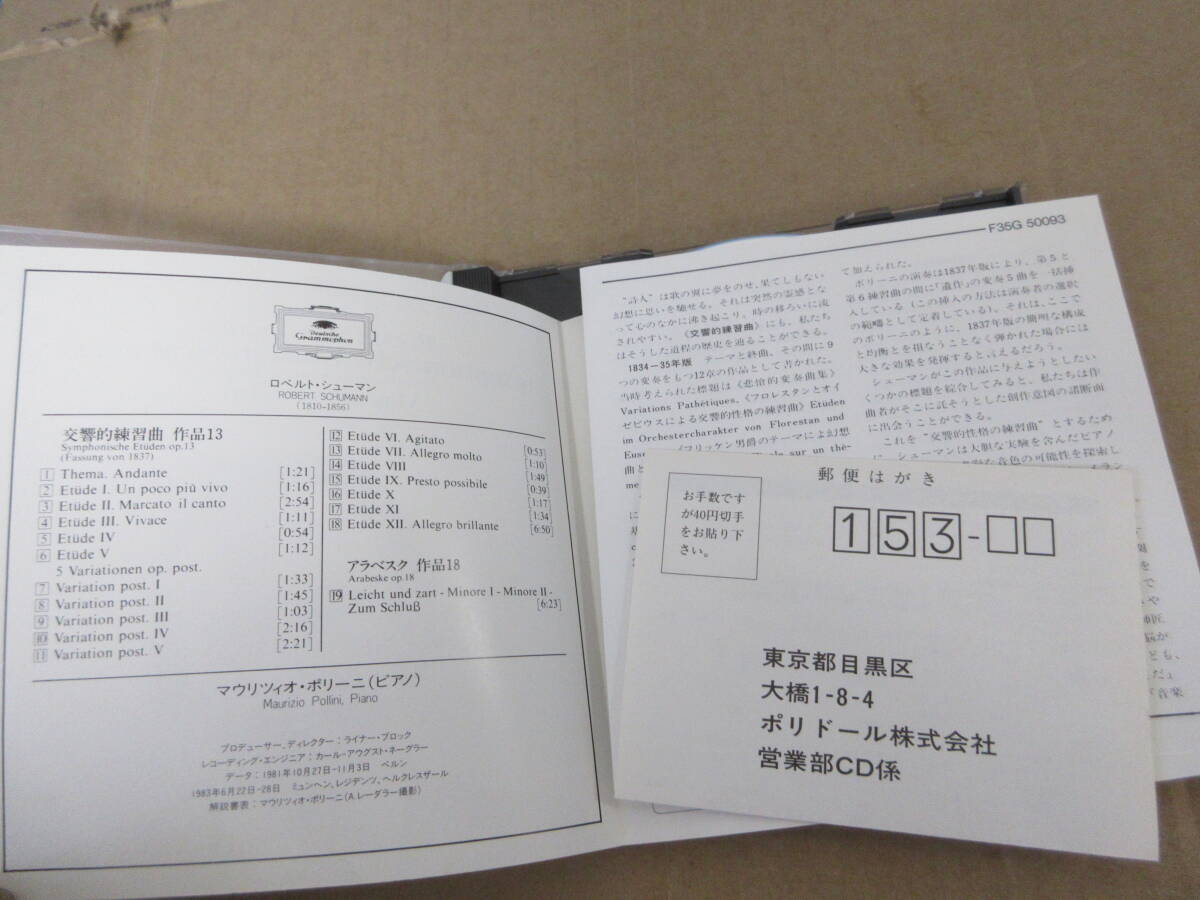 Deutsche
Grammophon
ロベルト・シューマン
ROBERT SCHUMANN
(1810-1856)
交響的練習曲 作品13
Symphonische Etüden op.13
(Fassung von 1837)
1 Thema. Andante [1:21]
2 Etüde I. Un poco più vivo [1:16]
3 Etüde II. Marcato il canto [2:54]
4 Etüde III. Vivace [1:11]
5 Etüde IV [0:54]
6 Etüde V [1:12]
5 Variationen op. post.
7 Variation post. I [1:33]
8 Variation post. II [1:45]
9 Variation post. III [1:03]
10 Variation post. IV [2:16]
11 Variation post. V [2:21]
12 Etüde VI. Agitato [0:53]
13 Etüde VII. Allegro molto [1:10]
14 Etüde VIII [1:49]
15 Etüde IX. Presto possibile [0:39]
16 Etüde X [1:17]
17 Etüde XI [1:34]
18 Etüde XII. Allegro brillante [6:50]
アラベスク 作品18
Arabeske op.18
19 Leicht und zart - Minore I - Minore II -
Zum Schluß [6:23]
マウリツィオ・ポリーニ(ピアノ)
Maurizio Pollini, Piano
プロデューサー、ディレクター：ライナー・ブロック
レコーディング・エンジニア：カール-アウグスト・ネーグラー
データ：1981年10月27日-11月3日 ベルン
1983年6月22日-28日 ミュンヘン、レジデンツ、ヘルクレスザール
解説書表：マウリツィオ・ポリーニ(A.レーダラー撮影)
F35G 50093
“詩人”は歌の翼に夢をのせ、果てしもない
幻想に思いを馳せる。それは突然の霊感とな
って心のなかに沸き起こり、時の移ろいに流
されやすい。《交響的練習曲》にも、私たち
はそうした道程の歴史を辿ることができる。
1834－35年版 テーマと終曲、その間に9
つの変奏をもつ12章の作品として書かれた。
当時考えられた標題は《悲愴的変奏曲集》
Variations Pathétiques、《フロレスタンとオイ
ゼビウスによる交響的性格の練習曲》Etüden
im Orchestercharakter von Florestan und
《フリッケン男爵のテーマによる幻想
て加えられた。
ポリーニの演奏は1837年版により、第5と
第6練習曲の間に「遺作」の変奏5曲を一括挿
入している（この挿入の方法は演奏者の選択
の範疇として定着している）。それは、ここで
のポリーニのように、1837年版の簡明な構成
と均衡とを損なうことなく弾かれた場合には
大きな効果を発揮すると言えるだろう。
シューマンがこの作品に与えようとしたい
くつかの標題を綜合してみると、私たちは作
曲者がそこに託そうとした創作意図の諸断面
に出会うことができる。
これを“交響的性格の練習曲”とするため
に、シューマンは大胆な実験を含んだピアノ
音色の可能性を探索し
郵便はがき
お手数です
が40円切手
をお貼り下
さい。
153-
東京都目黒区
大橋1-8-4
ポリドール株式会社
営業部CD係